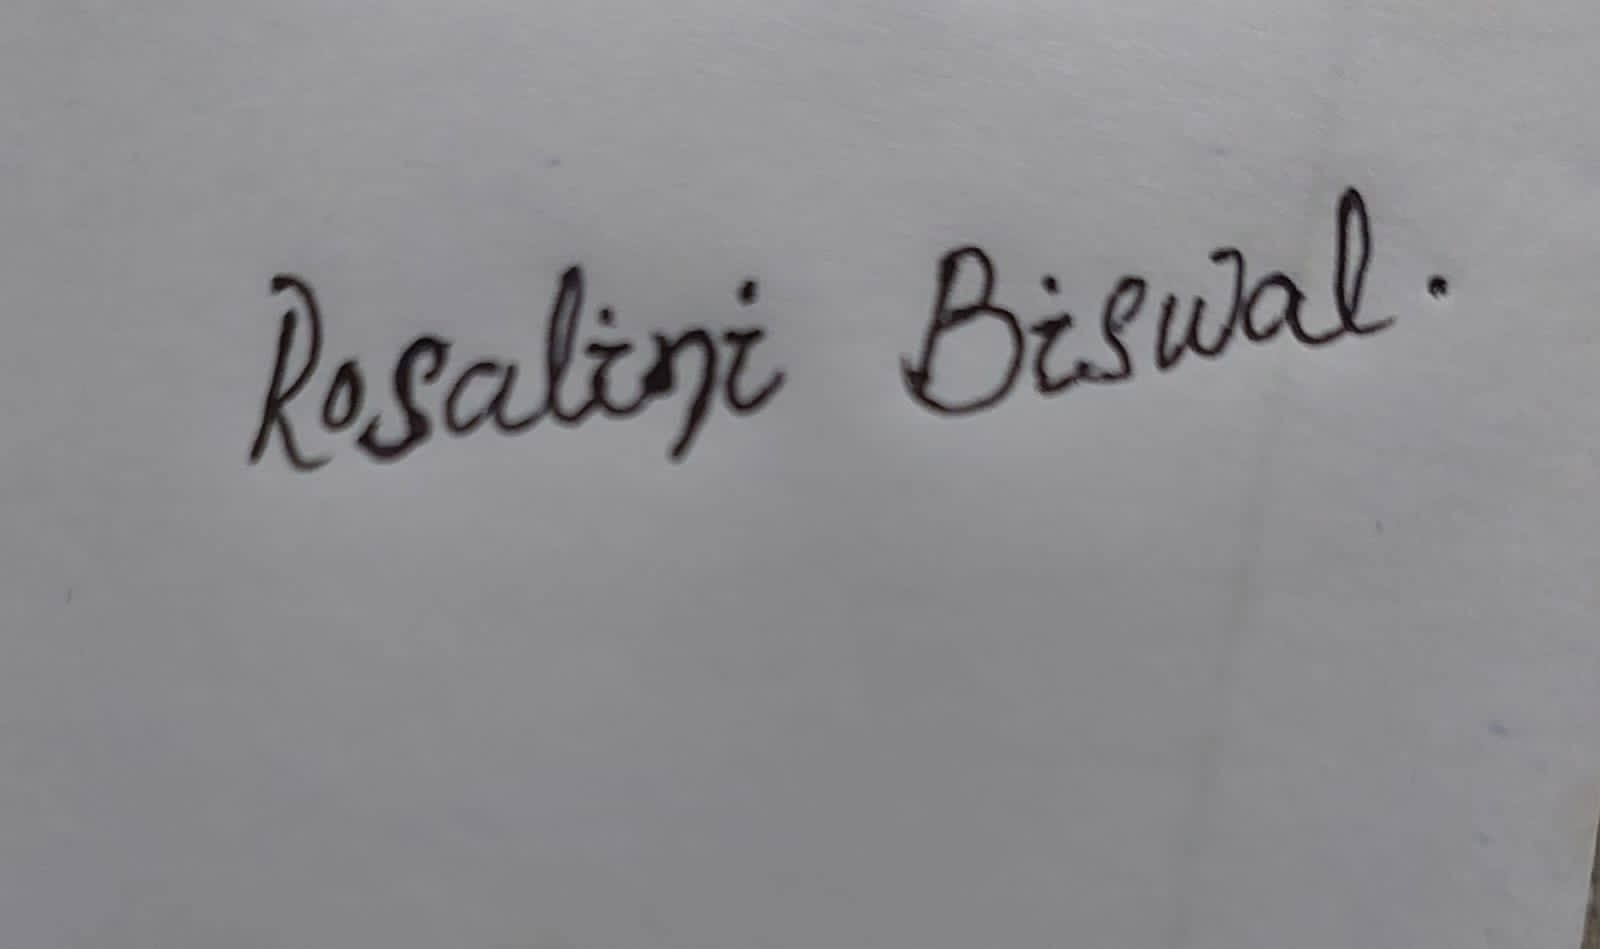 Rosalini Biswal.